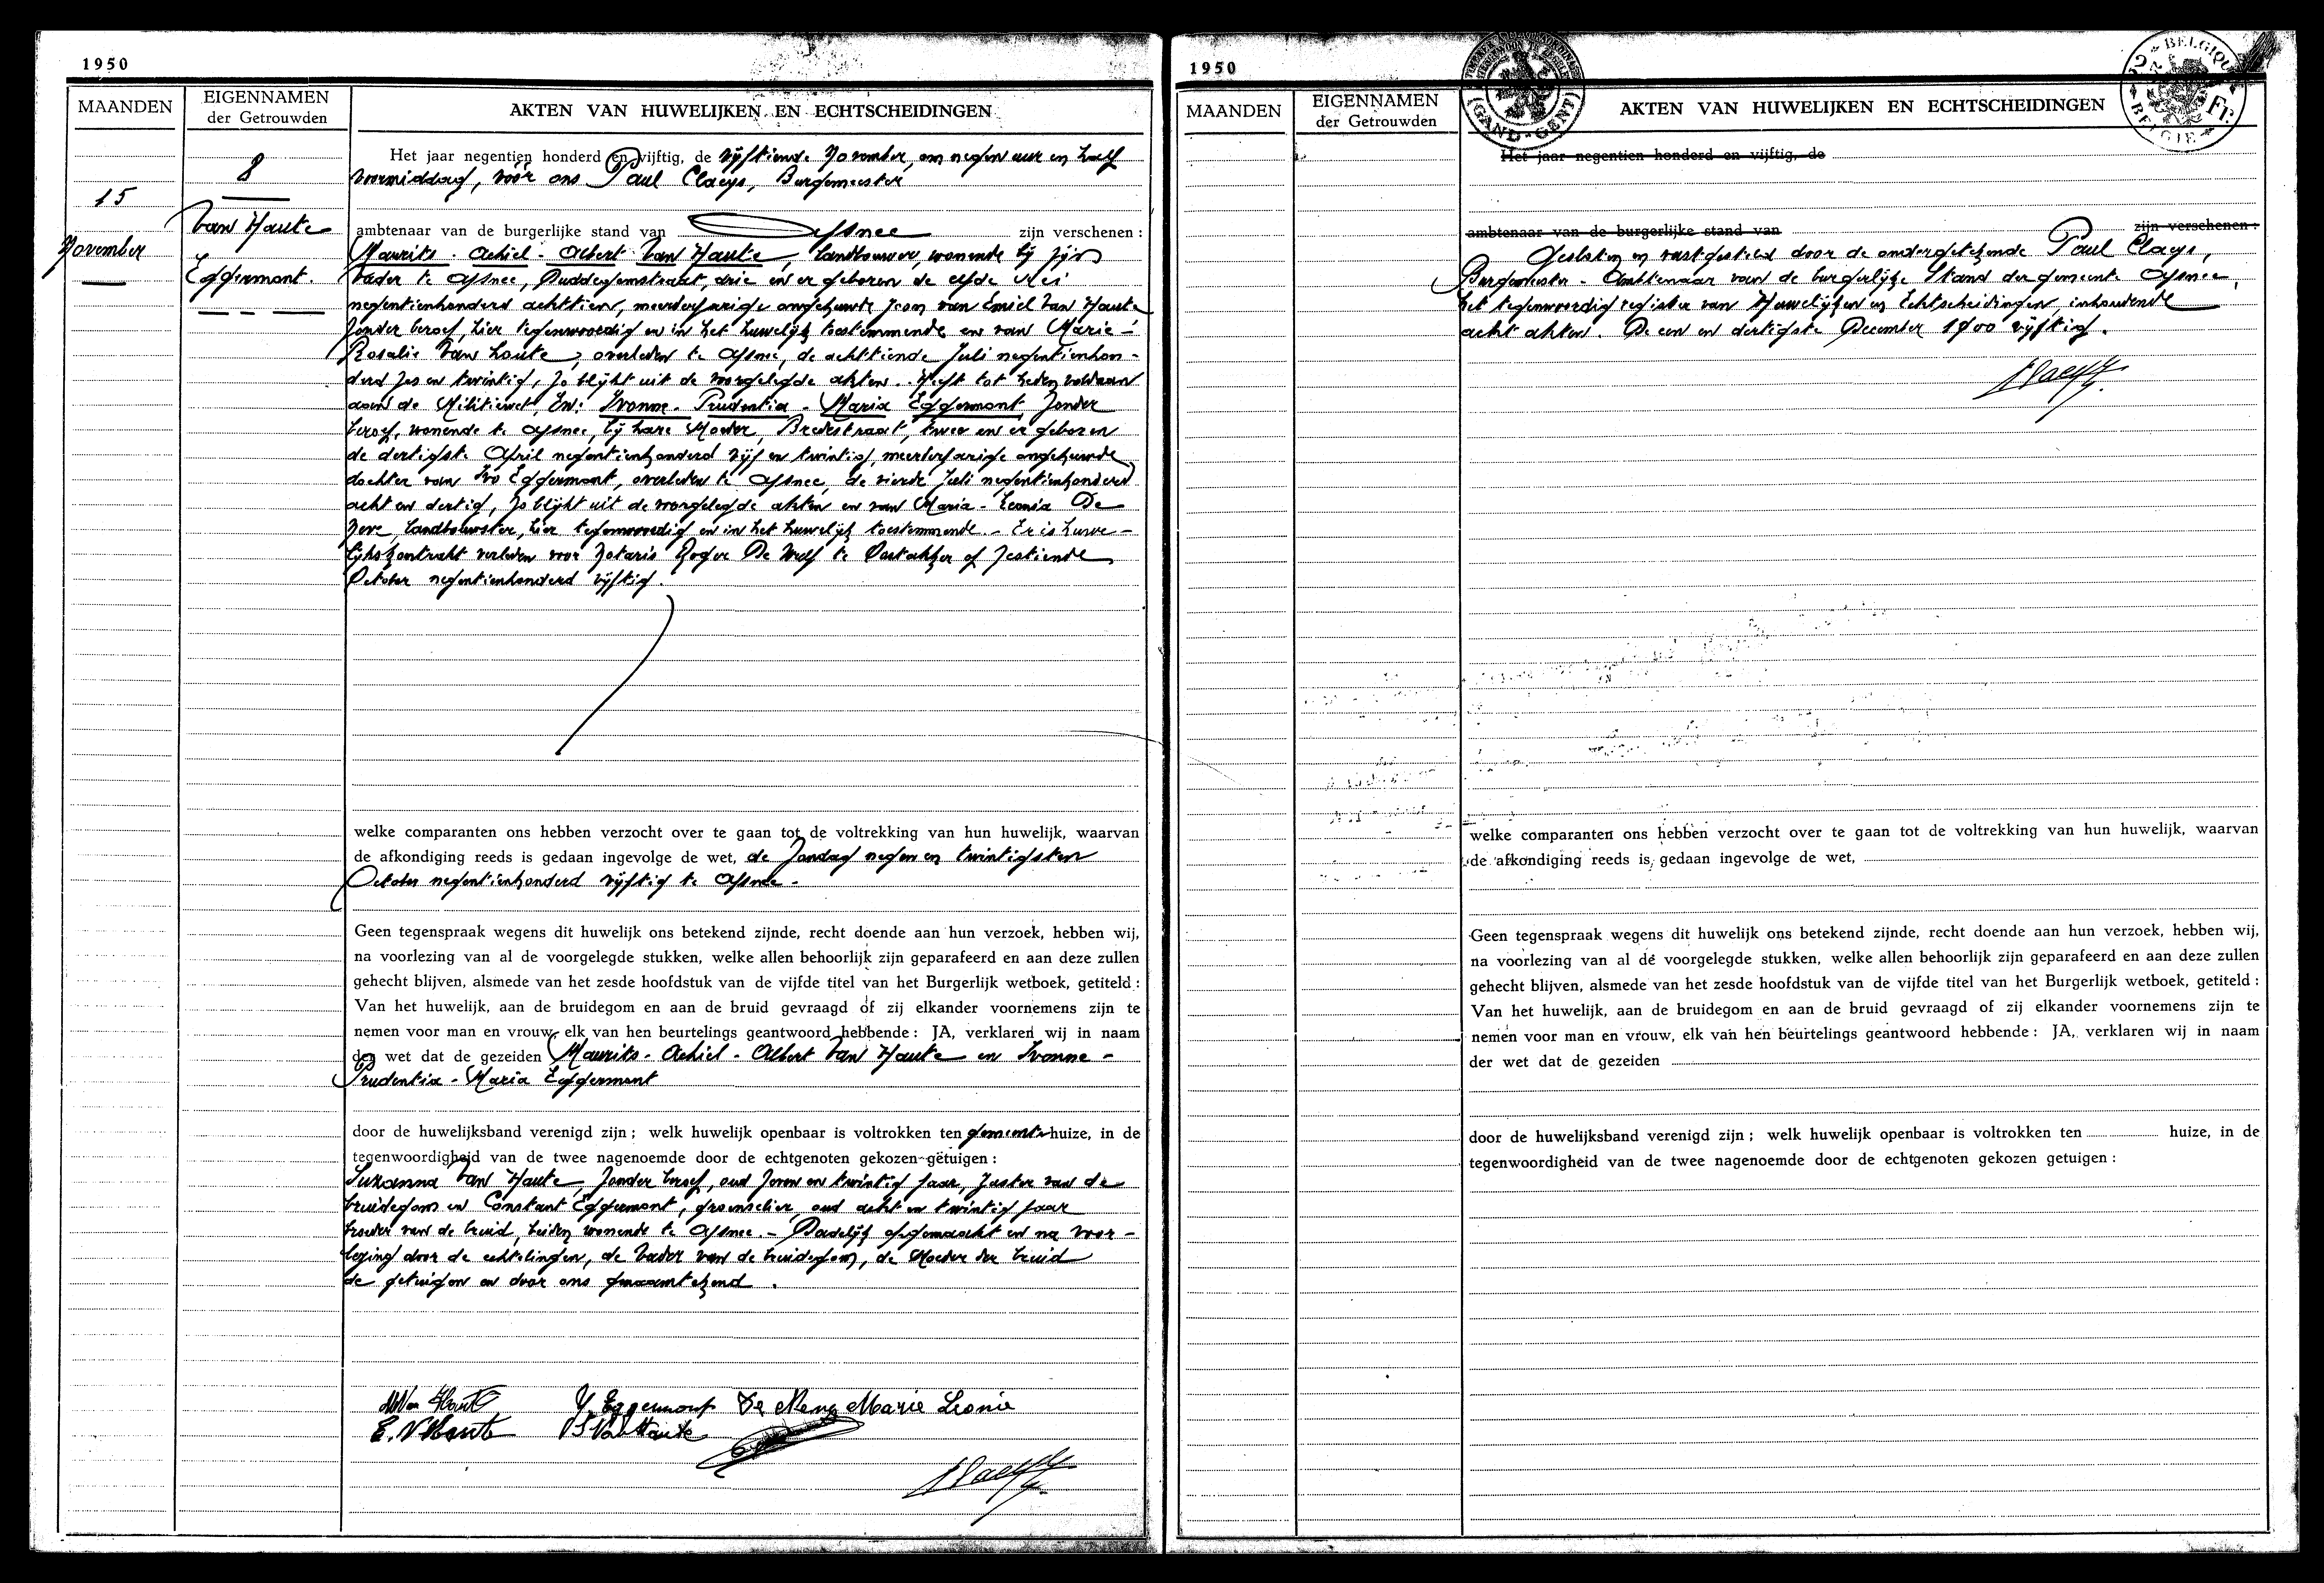 1950
MAANDEN
EIGENNAMEN
der Getrouwden
AKTEN VAN HUWELIJKEN EN ECHTSCHEIDINGEN
8
15
November
Van Haute
Eggermont.
Het jaar negentien honderd en vijftig, de vijftiende November, om negen uur en half
voormiddag, vóór ons Paul Claeys, Burgemeester
ambtenaar van de burgerlijke stand van Afsnee zijn verschenen :
Maurits - Achiel - Albert Van Haute, landbouwer, wonende bij zijn
vader te Afsnee, Duddegemstraat, drie en er geboren de elfde Mei
negentienhonderd achttien, meerderjarige ongehuwde zoon van Emiel Van Haute
zonder beroep, hier tegenwoordig en in het huwelijk toestemmende en van Marie-
Rosalie Van Loute, overleden te Afsnee, de achttiende Juli negentienhon-
derd zes en twintig, zo blijkt uit de voorgelegde akten. Heeft tot heden voldaan
aan de Militiewet, En: Ivonne - Prudentia - Maria Eggermont, zonder
beroep, wonende te Afsnee, bij hare Moeder, Broekstraat, twee en er geboren
de dertigste April negentienhonderd vijf en twintig, meerderjarige ongehuwde
dochter van Ivo Eggermont, overleden te Afsnee, de vierde Juli negentienhonderd
acht en dertig, zo blijkt uit de voorgelegde akten en van Maria-Leonia De
Neve, landbouwster, hier tegenwoordig en in het huwelijk toestemmende - Er is huwe-
lijkskontrakt verleden voor Notaris Roger De Wulf te Oostakker op zestiende
October negentienhonderd vijftig.
welke comparanten ons hebben verzocht over te gaan tot de voltrekking van hun huwelijk, waarvan
de afkondiging reeds is gedaan ingevolge de wet, de Zondag negen en twintigsten
October negentienhonderd vijftig te Afsnee -
Geen tegenspraak wegens dit huwelijk ons betekend zijnde, recht doende aan hun verzoek, hebben wij,
na voorlezing van al de voorgelegde stukken, welke allen behoorlijk zijn geparafeerd en aan deze zullen
gehecht blijven, alsmede van het zesde hoofdstuk van de vijfde titel van het Burgerlijk wetboek, getiteld :
Van het huwelijk, aan de bruidegom en aan de bruid gevraagd of zij elkander voornemens zijn te
nemen voor man en vrouw, elk van hen beurtelings geantwoord hebbende : JA, verklaren wij in naam
der wet dat de gezeiden Maurits - Achiel - Albert Van Haute en Ivonne -
Prudentia - Maria Eggermont
door de huwelijksband verenigd zijn ; welk huwelijk openbaar is voltrokken ten gemeentehuize, in de
tegenwoordigheid van de twee nagenoemde door de echtgenoten gekozen getuigen :
Suzanna Van Haute, zonder beroep, oud zeven en twintig jaar, zuster van de
bruidegom en Constant Eggermont, groenselier, oud acht en twintig jaar
broeder van de bruid, beiden wonende te Afsnee. - Dadelijk opgemaakt en na voor-
lezing door de echtelingen, de Vader van de bruidegom, de Moeder der bruid
de getuigen en door ons genaamtekend.
M Van Haute Y. Eggermont De Neve Marie Leonie
E. V Haute S Van Haute
Claeys
1950
MAANDEN
EIGENNAMEN
der Getrouwden
AKTEN VAN HUWELIJKEN EN ECHTSCHEIDINGEN
(GAND-GENT)
BELGIQUE
Fr.
BELGIE
Het jaar negentien honderd en vijftig, de
ambtenaar van de burgerlijke stand van zijn verschenen :
Gesloten en vastgesteld door de ondergetekende Paul Claeys,
Burgemeester - Ambtenaar van de burgerlijke Stand der gemeente Afsnee,
het tegenwoordig register van Huwelijken en Echtscheidingen, inhoudende
acht akten. De een en dertigste December 1900 vijftig.
Claeys
welke comparanten ons hebben verzocht over te gaan tot de voltrekking van hun huwelijk, waarvan
de afkondiging reeds is gedaan ingevolge de wet,
Geen tegenspraak wegens dit huwelijk ons betekend zijnde, recht doende aan hun verzoek, hebben wij,
na voorlezing van al de voorgelegde stukken, welke allen behoorlijk zijn geparafeerd en aan deze zullen
gehecht blijven, alsmede van het zesde hoofdstuk van de vijfde titel van het Burgerlijk wetboek, getiteld :
Van het huwelijk, aan de bruidegom en aan de bruid gevraagd of zij elkander voornemens zijn te
nemen voor man en vrouw, elk van hen beurtelings geantwoord hebbende : JA, verklaren wij in naam
der wet dat de gezeiden
door de huwelijksband verenigd zijn ; welk huwelijk openbaar is voltrokken ten huize, in de
tegenwoordigheid van de twee nagenoemde door de echtgenoten gekozen getuigen :